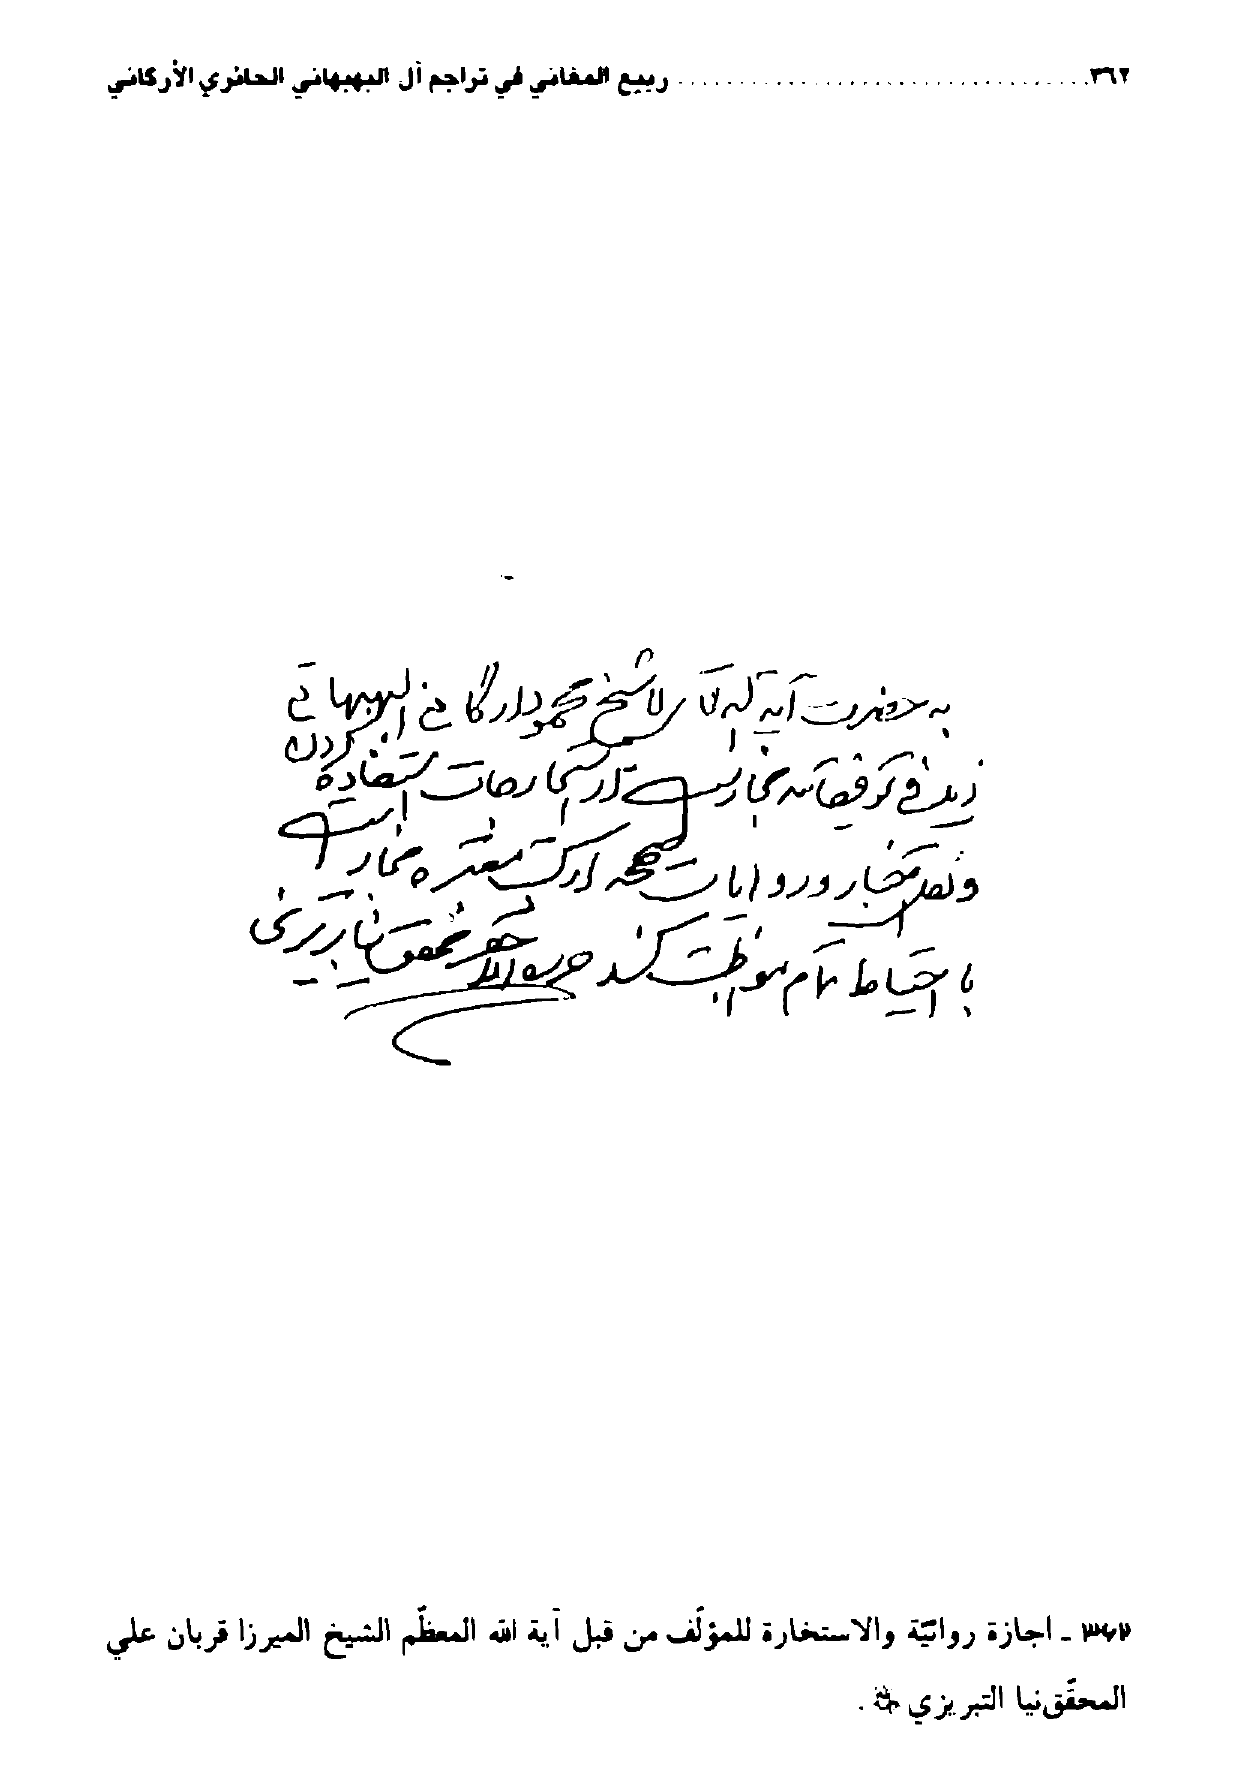 ٣٦٢ ................................ ربيع المغاني في تراجم آل البهبهاني الحائري الأركاني
به حضرت آية الله آقای شیخ محمود ارگانی البهبهانی
زید فی توفیقاته مجاز است در استخارجات استفاده کردن
و نقل اخبار و روایات صحیحه از کتب معتبره مختار است
با احتیاط تمام مواظبت کنند حرره الاحقر محقق نیا تبریزی
٣٦٢ ـ اجازة روائيّة والاستخارة للمؤلّف من قبل آية الله المعظّم الشيخ الميرزا قربان علي
المحقّق‌نيا التبريزي .